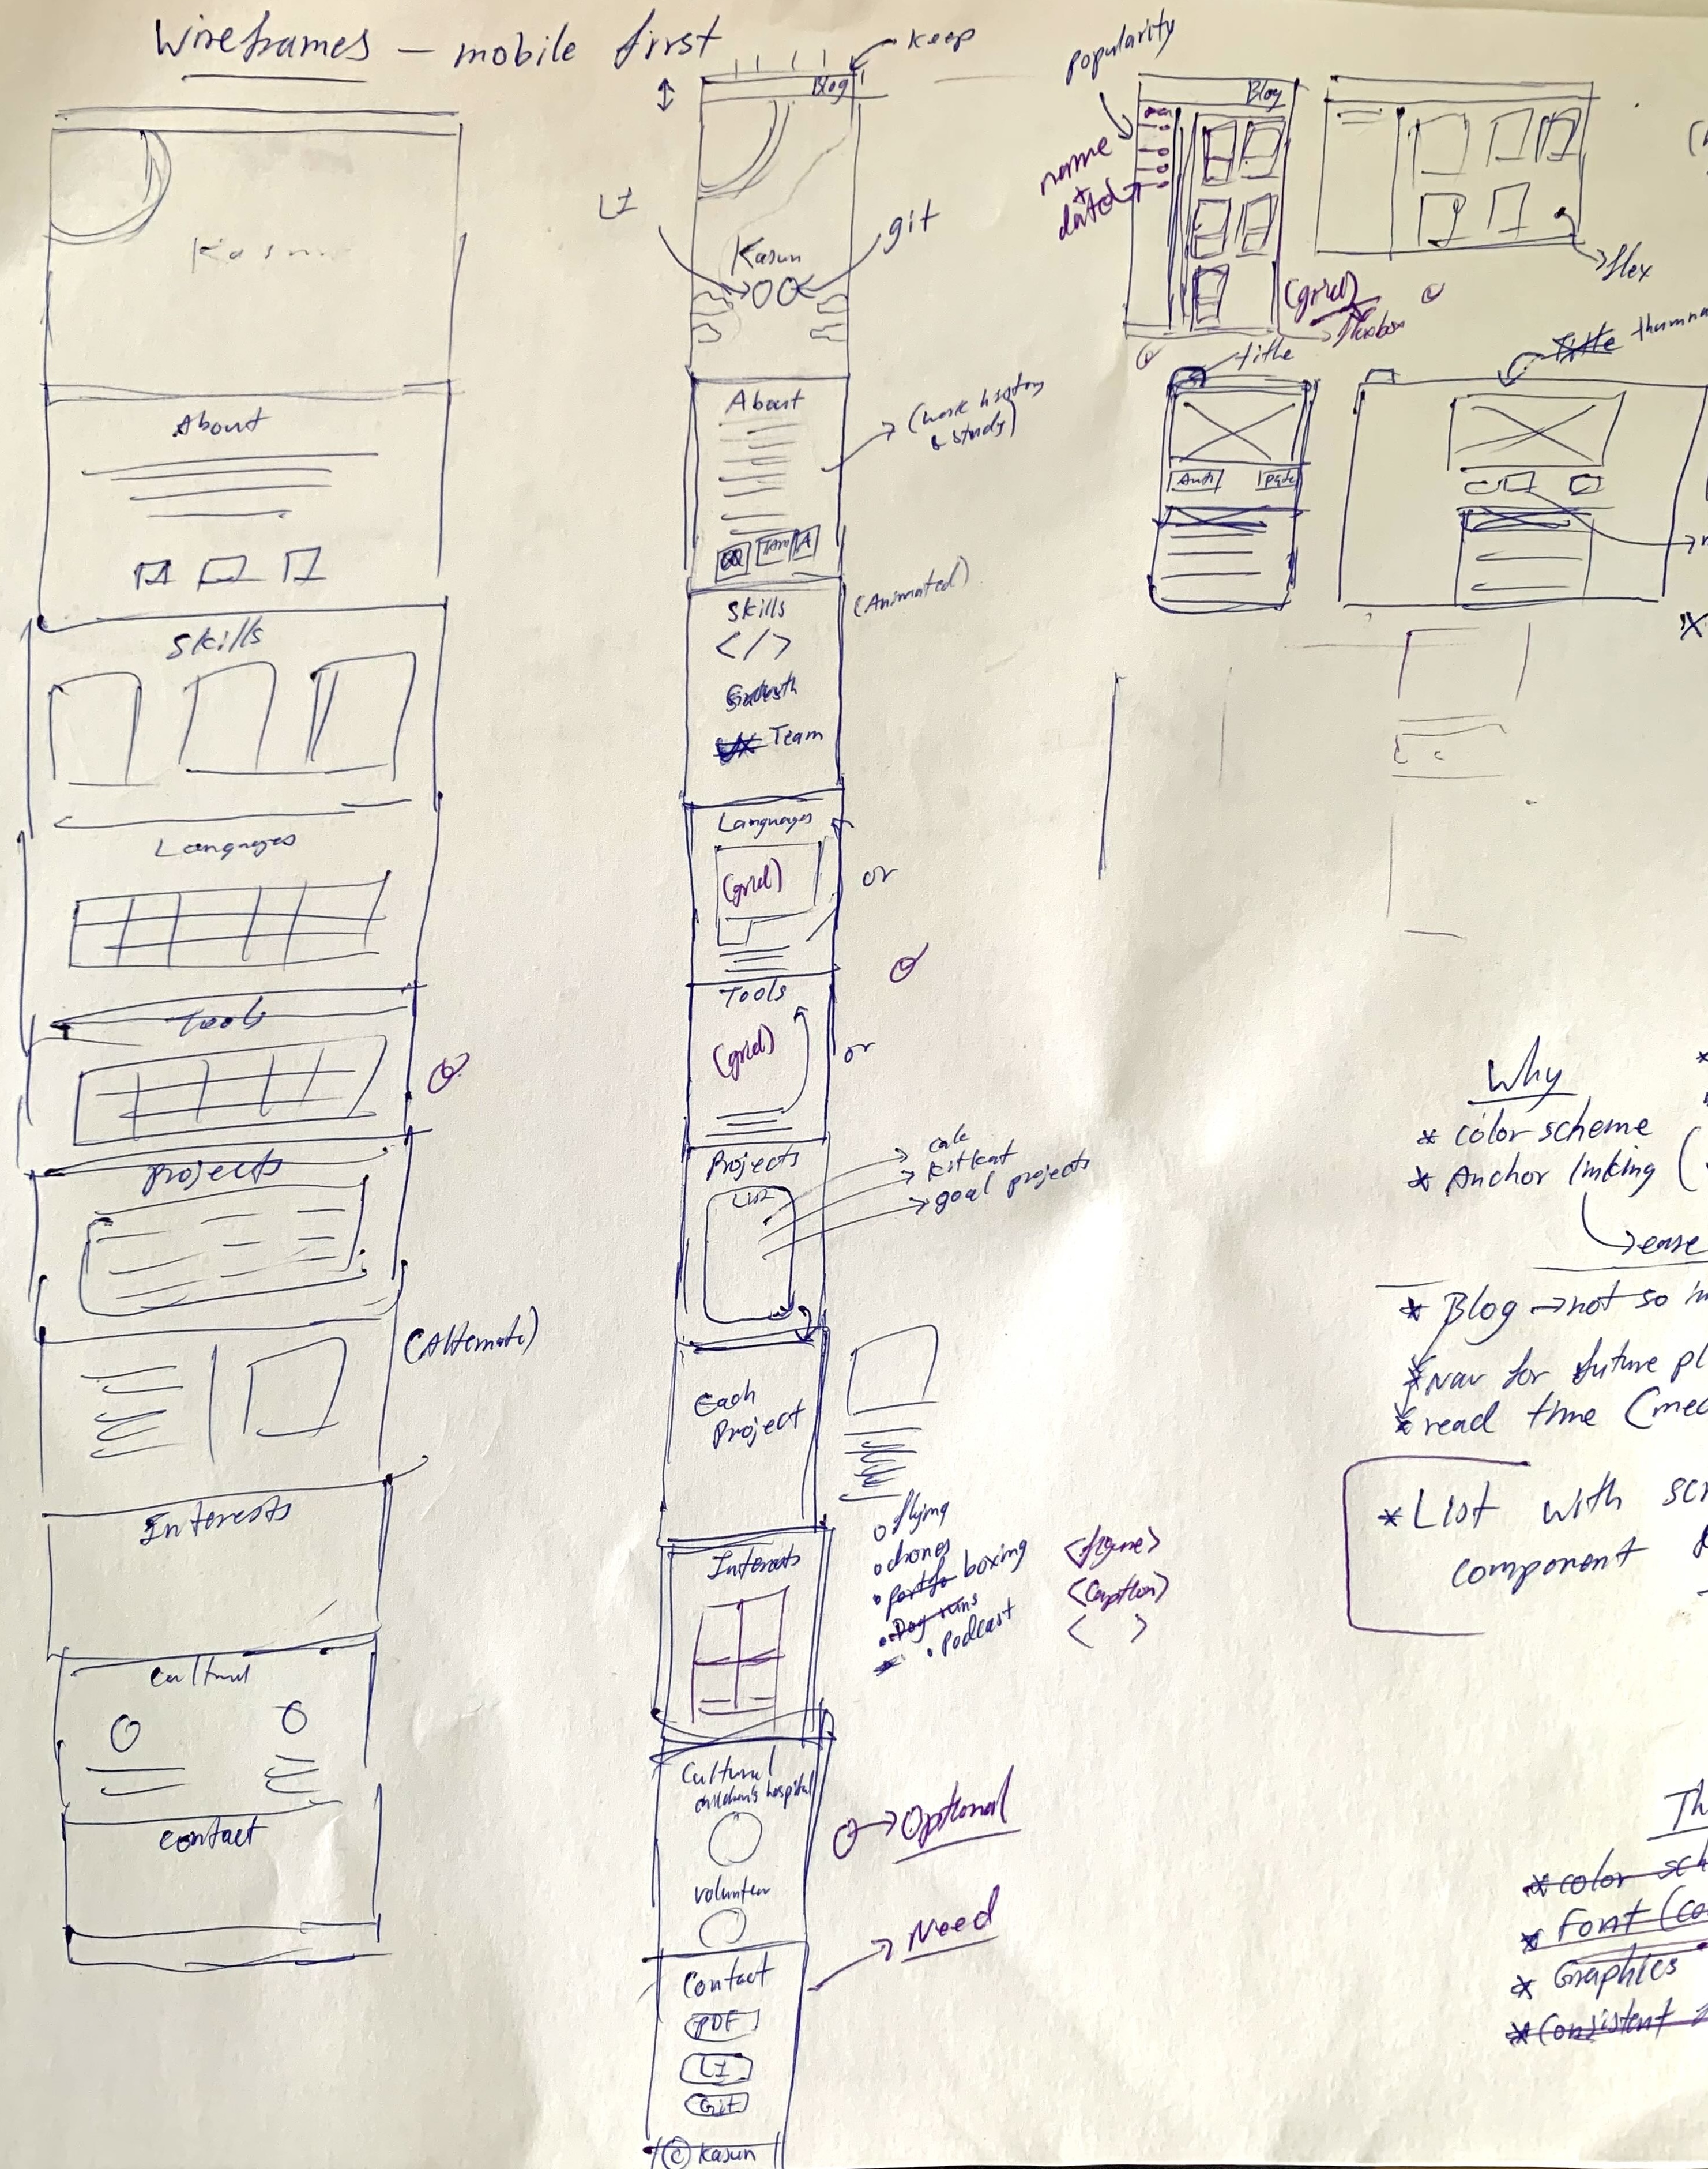 Wireframes - mobile first
Kasun
About
Skills
Languages
Tools
Projects
(Alternate)
Interests
Cultural
Contact
Keep
Blog
LI
git
Kasun
About
(work history
& study)
Skills
(Animated)
</>
Team
Languages
(grid)
or
Tools
(grid)
or
Projects
List
calc
kitkat
goal projects
Each
Project
Interests
flying
drones
boxing
Dog runs
Podcast
<figure>
<Caption>
< >
Cultural
children's hospital
volunteer
Optional
Contact
Need
PDF
LI
Git
© Kasun
popularity
name
+
dated
Blog
(grid)
flexbox
flex
title
Title
Why
* color scheme
* Anchor linking (
ease
* Blog → not so
* nav for future
* read time
* List with
component
* color
* Font
* Graphics
* Consistent